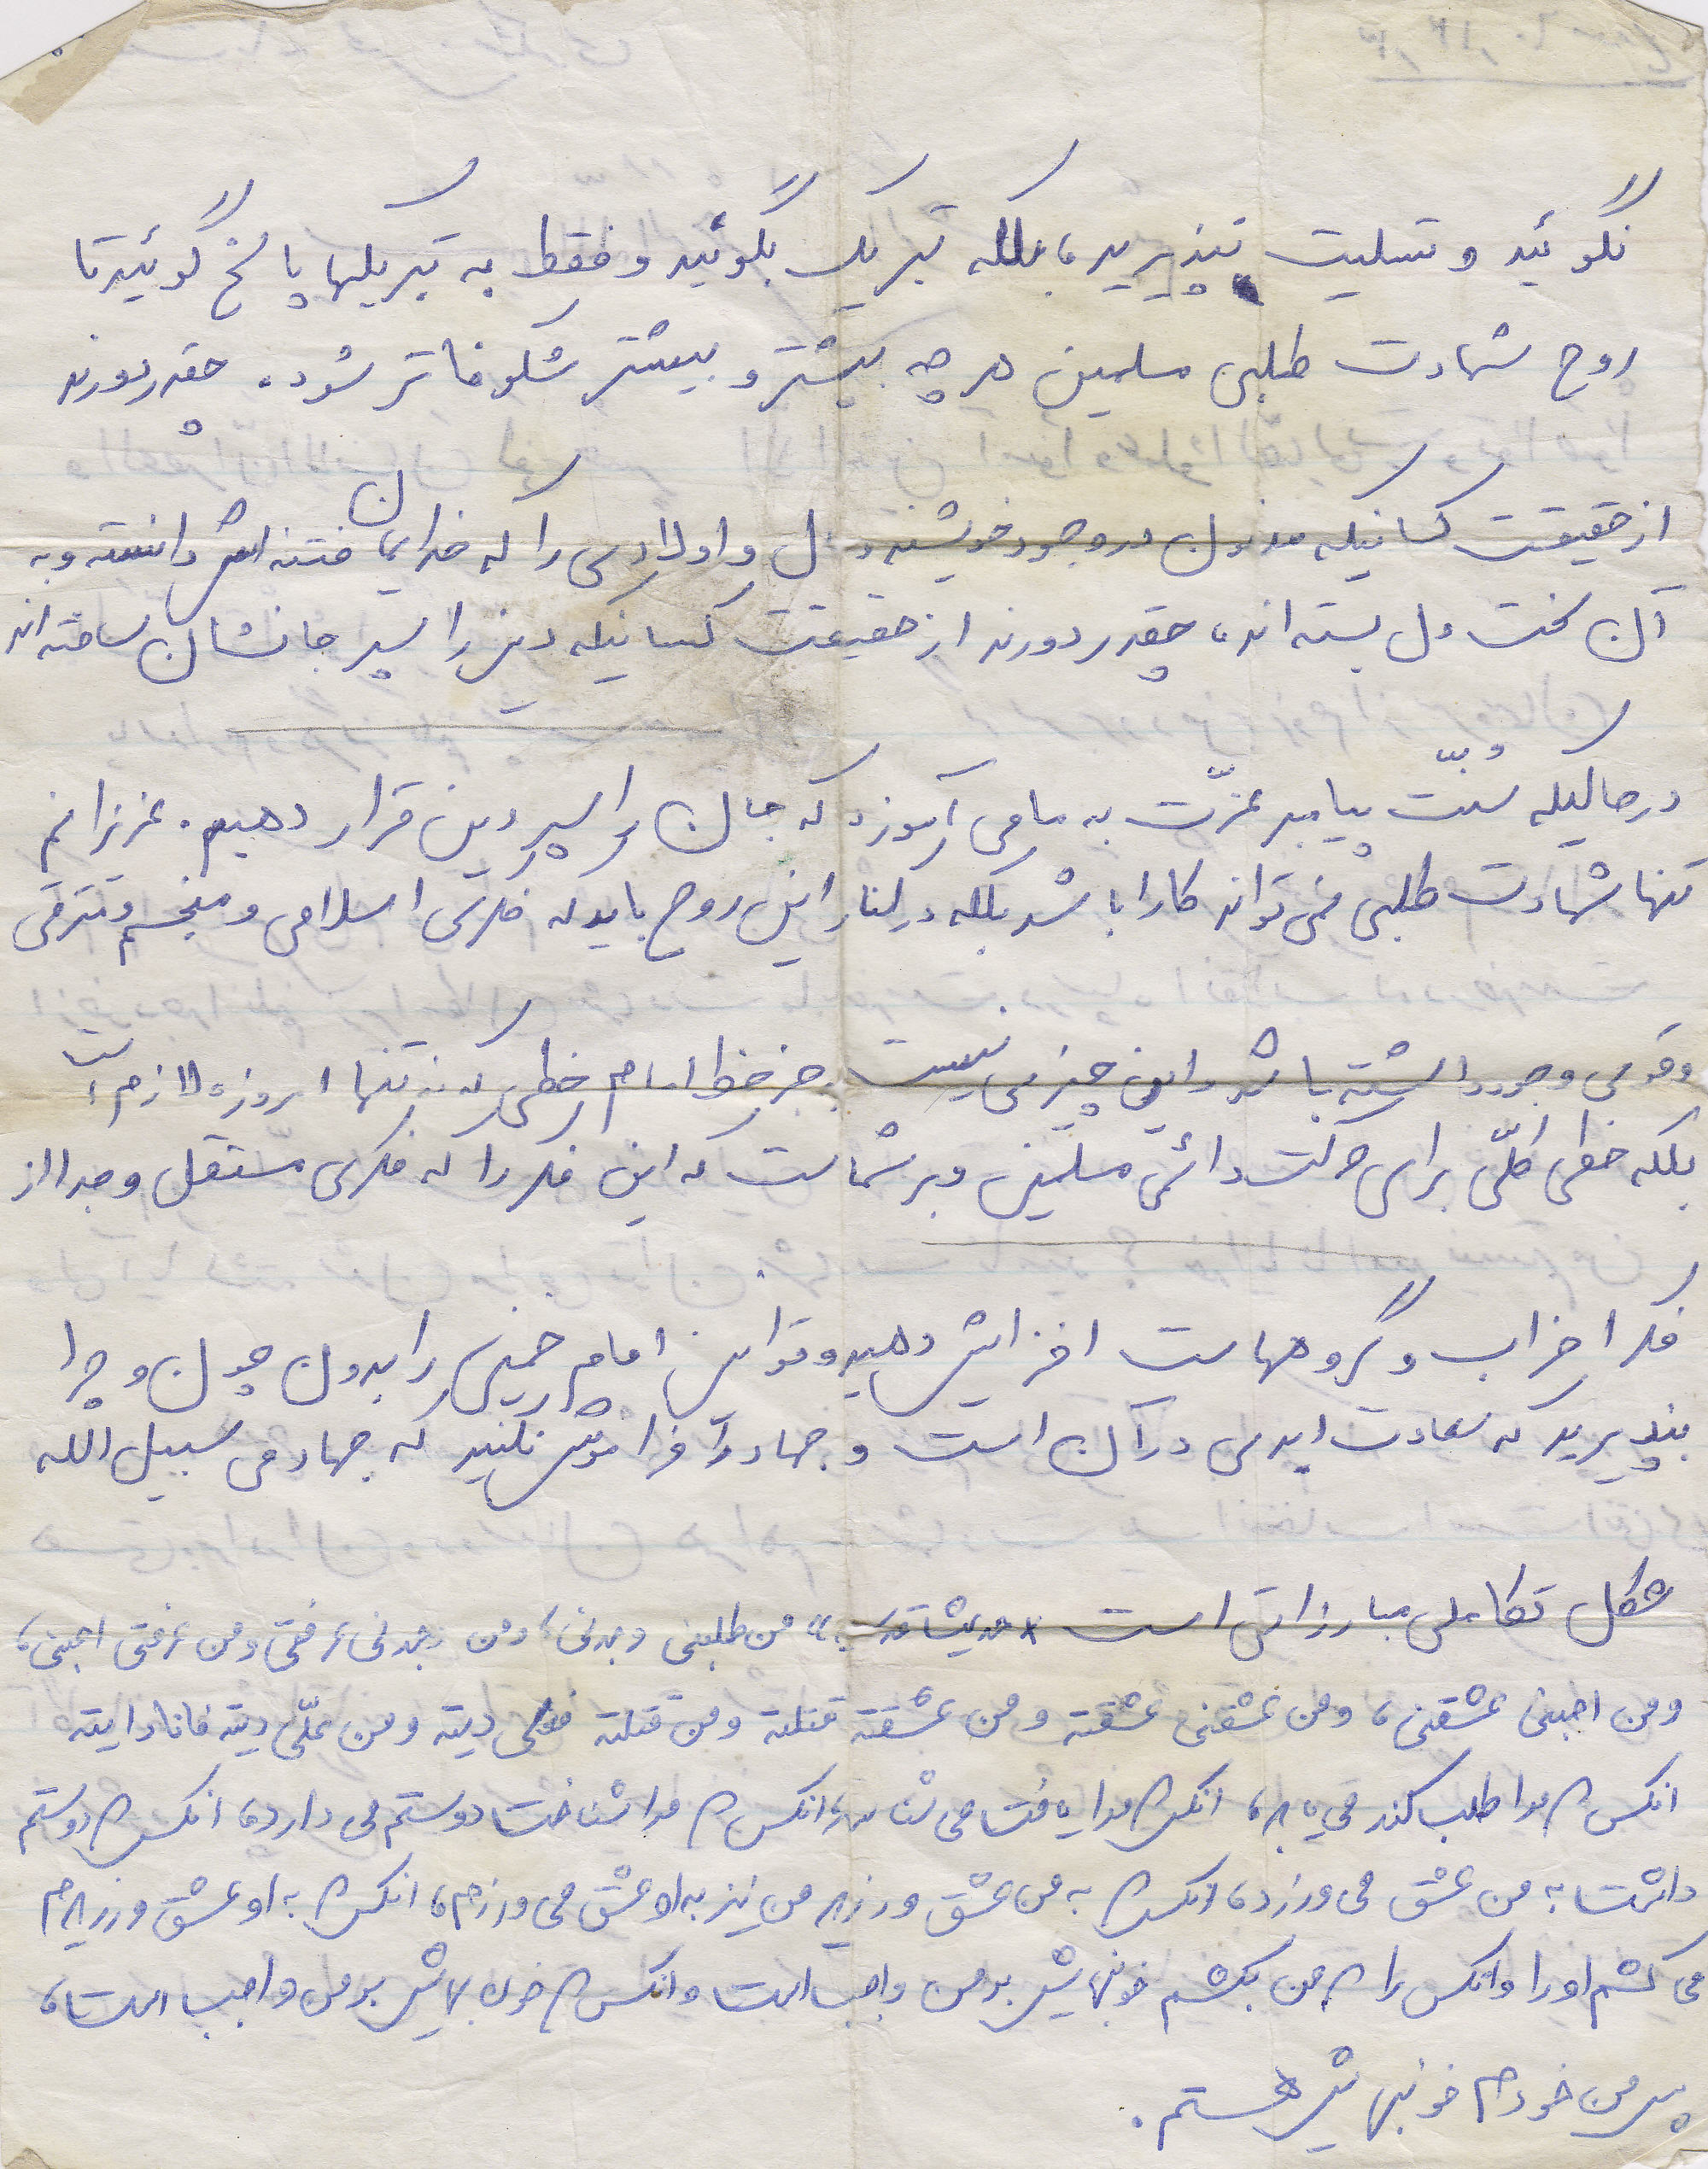 نگوئید و تسلیت نپذیرید، بلکه تبریک بگوئید و فقط به تبریکها پاسخ گوئید تا
روح شهادت طلبی مسلمین هر چه بیشتر و بیشتر شکوفاتر شود. چقدر دورند
از حقیقت کسانیکه در وجود خویشند و اولادی را که خدایمان فتنه اش دانسته و به
آن سخت دل بسته اند، چقدر دورند از حقیقت کسانیکه دین را سپر جانشان ساخته اند
در حالیکه سُنّت پیامبر عزّت به ما می آموزد که جان را سپر دین قرار دهیم. عزیزانم
تنها شهادت طلبی نمی تواند کارا باشد بلکه در کنار این روح باید که فکری اسلامی و منسجم و مترقی
و قوی وجود داشته باشد و این چیزی نیست بجز خط امام خطی که نه تنها امروزه لازم است
بلکه خطی کلّی برای حرکت دائمی مسلمین و بر شماست که این فکر را که فکری مستقل و جدا از
فکر احزاب و گروههاست افزایش دهید و قوانین امام خمینی را بدون چون و چرا
بپذیرید که سعادت ابدی در آن است و جهاد را فراموش نکنید که جهاد فی سبیل الله
شکل تکاملی مبارزاتی است * حدیث قدسی: "من طلبنی وجدنی، و من وجدنی عرفنی و من عرفنی احبنی،
و من احبنی عشقنی، و من عشقنی عشقته و من عشقته قتلته و من قتلته فعلی دیته و من علّی دیته فانا دایته
انکس که مرا طلب کند می یابد، انکس که مرا یافت می شناسد، انکس که مرا شناخت دوستم می دارد، انکس که دوستم
داشت به من عشق می ورزد، انکس که به من عشق ورزید من نیز به او عشق می ورزم، انکس که به او عشق ورزیدم
می کشم او را و انکس را که من بکشم خونبهایش بر من واجب است و انکس که خون بهایش بر من واجب است،
پس من خودم خونبهایش هستم.